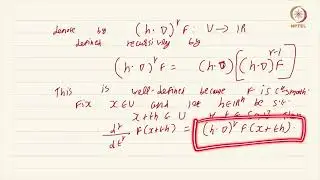 NPTEL
denote by (h·∇)^r F: U → ℝ
defined recursively by
(h·∇)^r F = (h·∇) [(h·∇)^{r-1} F]
This is well-defined because F is C^k-smooth.
Fix x∈U and let h∈ℝ^n be s.t.
x+th ∈ U
d^r/dt^r F(x+th) = (h·∇)^r F(x+th).